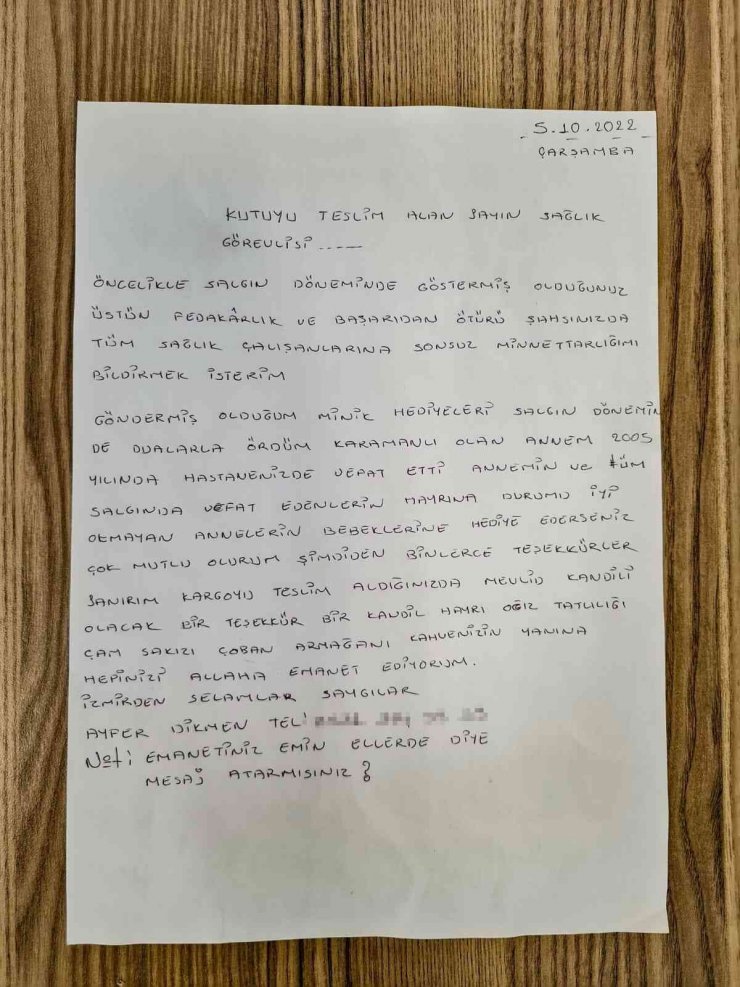 5.10.2022
ÇARŞAMBA
KUTUYU TESLİM ALAN SAYIN SAĞLIK
GÖREVLİSİ .....
ÖNCELİKLE SALGIN DÖNEMİNDE GÖSTERMİŞ OLDUĞUNUZ
ÜSTÜN FEDAKÂRLIK VE BAŞARIDAN ÖTÜRÜ ŞAHSINIZDA
TÜM SAĞLIK ÇALIŞANLARINA SONSUZ MİNNETTARLIĞIMI
BİLDİRMEK İSTERİM
GÖNDERMİŞ OLDUĞUM MİNİK HEDİYELERİ SALGIN DÖNEMİN
DE DUALARLA ÖRDÜM KARAMANLI OLAN ANNEM 2005
YILINDA HASTANENİZDE VEFAT ETTİ ANNEMİN VE TÜM
SALGINDA VEFAT EDENLERİN HAYRINA DURUMU İYİ
OLMAYAN ANNELERİN BEBEKLERİNE HEDİYE EDERSENİZ
ÇOK MUTLU OLURUM ŞİMDİDEN BİNLERCE TEŞEKKÜRLER
SANIRIM KARGOYU TESLİM ALDIĞINIZDA MEVLİD KANDİLİ
OLACAK BİR TEŞEKKÜR BİR KANDİL HAYRI AĞIZ TATLILIĞI
ÇAM SAKIZI ÇOBAN ARMAĞANI KAHVENİZİN YANINA
HEPİNİZİ ALLAHA EMANET EDİYORUM.
İZMİRDEN SELAMLAR SAYGILAR
AYFER DİKMEN TEL:
Not: EMANETİNİZ EMİN ELLERDE DİYE
MESAJ ATARMISINIZ ?